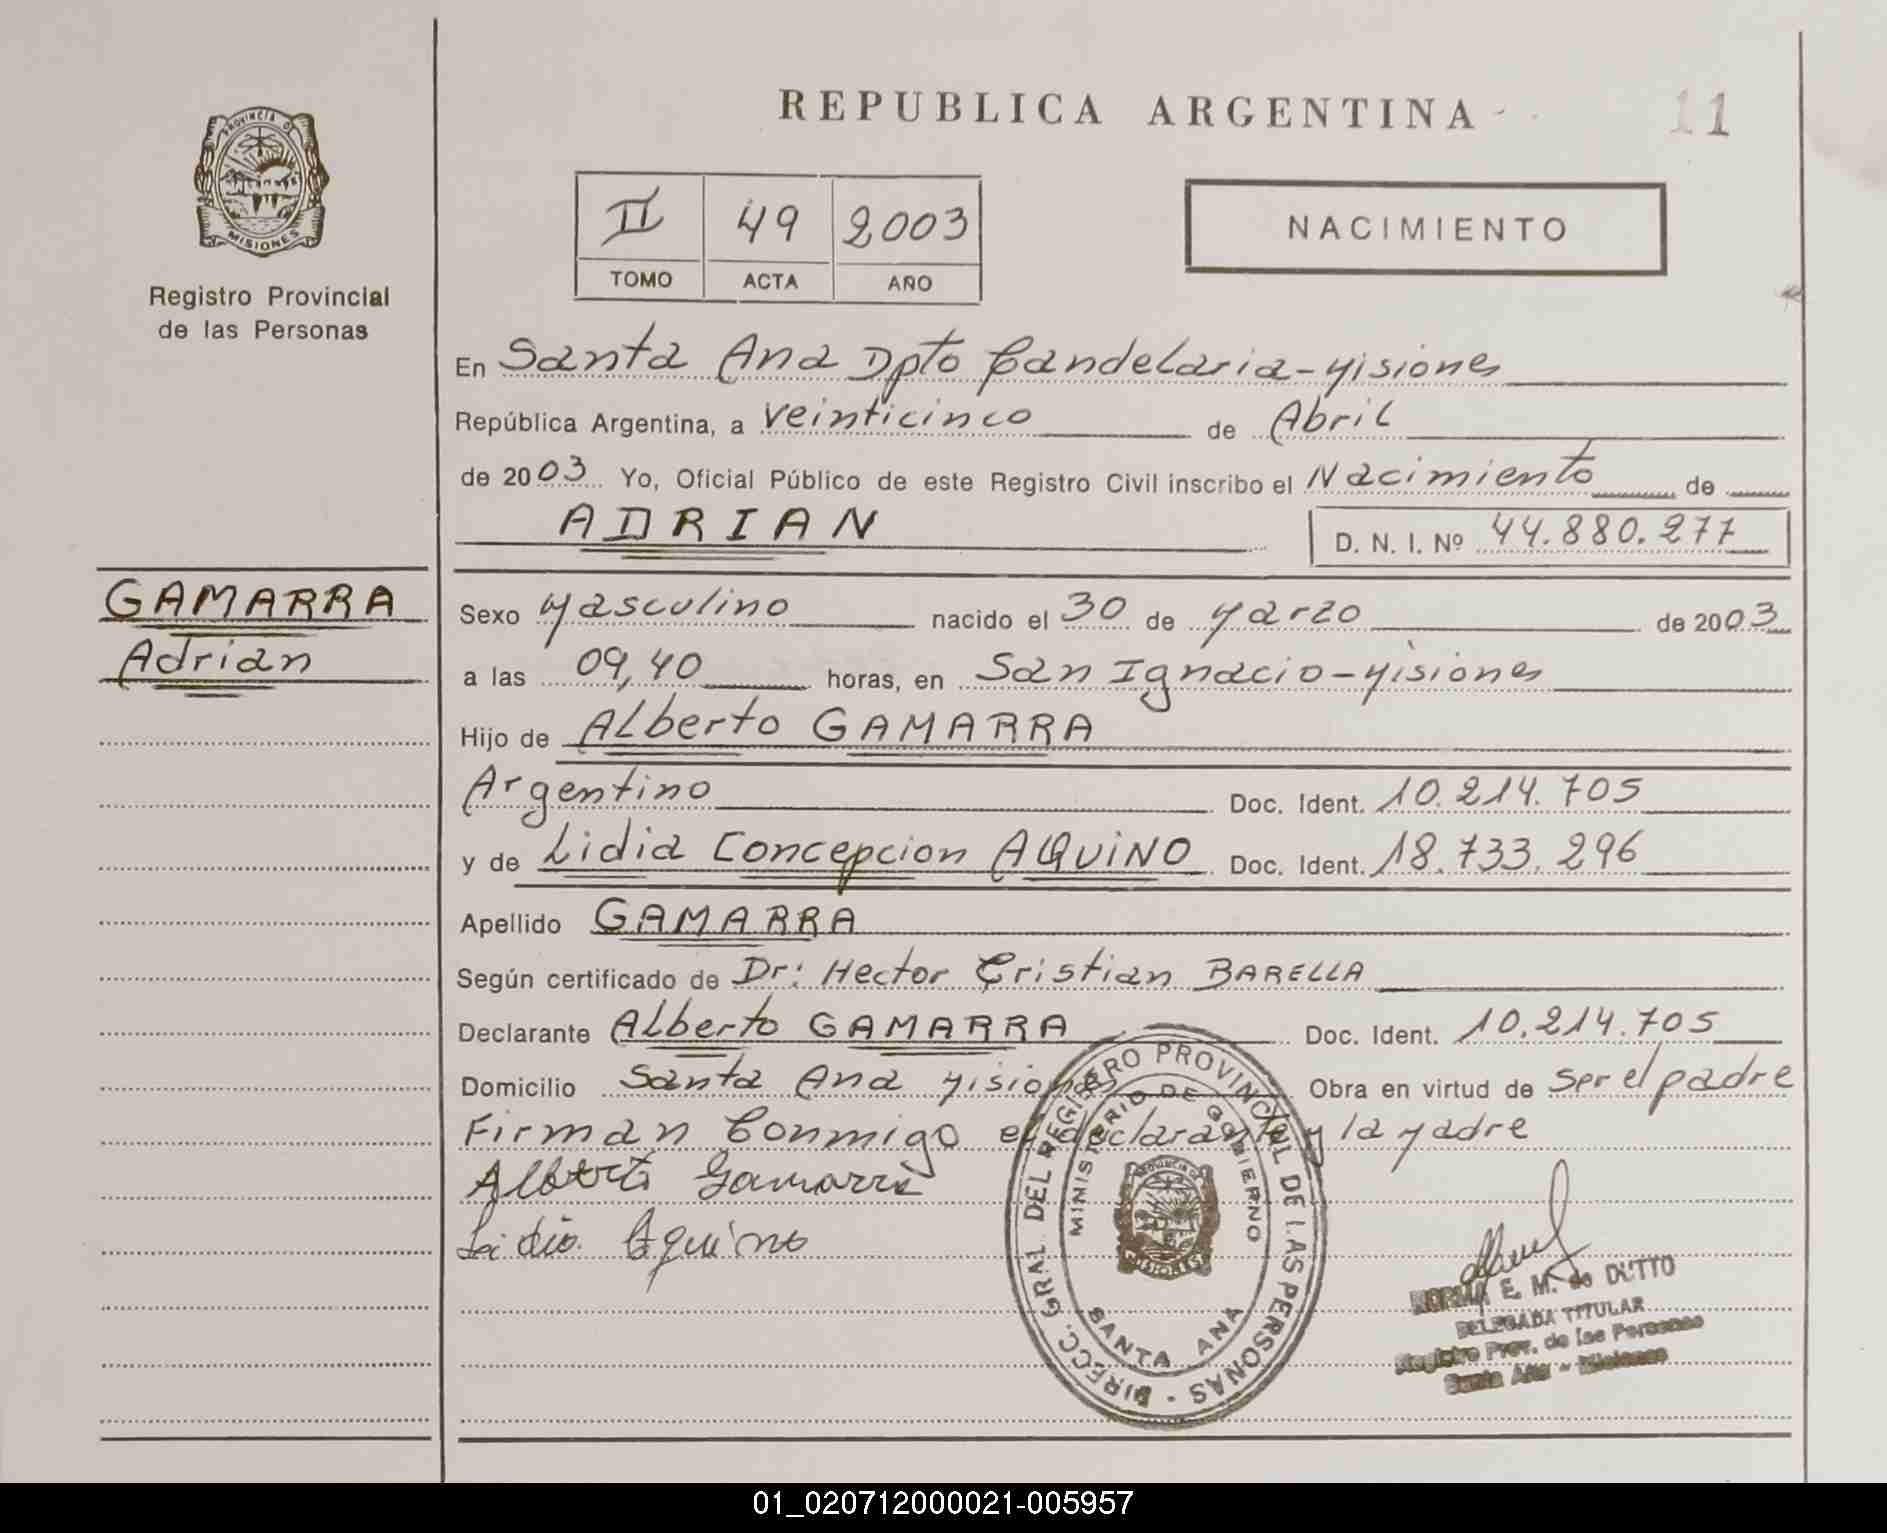 REPUBLICA ARGENTINA
11
PROVINCIA DE
MISIONES
Registro Provincial
de las Personas
II 49 2003
TOMO ACTA AÑO
NACIMIENTO
En Santa Ana Dpto Candelaria - Misiones
República Argentina, a veinticinco de Abril
de 2003 Yo, Oficial Público de este Registro Civil inscribo el Nacimiento de
ADRIAN D. N. I. Nº 44.880.277
GAMARRA
Adrian
Sexo Masculino nacido el 30 de Marzo de 2003
a las 09,40 horas, en San Ignacio - Misiones
Hijo de Alberto GAMARRA
Argentino Doc. Ident. 10.214.705
y de Lidia Concepcion AQUINO Doc. Ident. 18.733.296
Apellido GAMARRA
Según certificado de Dr: Hector Cristian BARELLA
Declarante Alberto GAMARRA Doc. Ident. 10.214.705
Domicilio Santa Ana Misiones Obra en virtud de ser el padre
Firman Conmigo el declarante y la Madre
Alberto Gamarra
Lidia Aquino
DIRECC. GRAL. DEL REGISTRO PROVINCIAL DE LAS PERSONAS -
MINISTERIO DE GOBIERNO
MISIONES
SANTA ANA
NORMA E. M. de DUTTO
DELEGADA TITULAR
Registro Prov. de las Personas
Santa Ana - Misiones
01_020712000021-005957